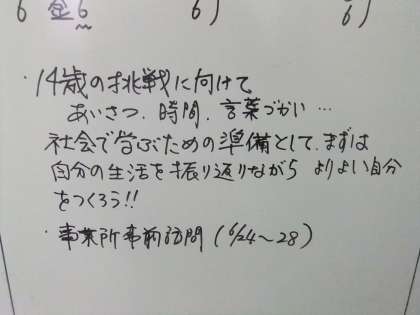 6 金6 6) 6)
・14歳の挑戦に向けて
あいさつ、時間、言葉づかい…
社会で学ぶための準備として、まずは
自分の生活を振り返りながら よりよい自分
をつくろう!!
・事業所事前訪問 (6/24〜28)